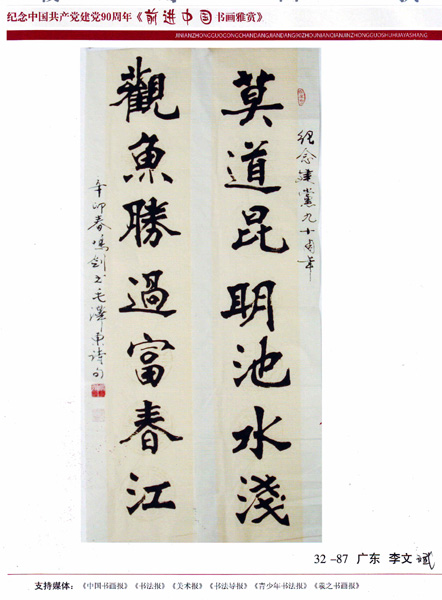 纪念中国共产党建党90周年《前进中国书画雅赏》
JINIANZHONGGUOGONGCHANDANGJIANDANG90ZHOUNIANQIANJINZHONGGUOSHUHUAYASHANG
纪念建黨九十周年
莫道昆明池水淺
觀魚勝過富春江
辛卯春书毛澤東詩句
32 -87 广东 李文斌
支持媒体：《中国书画报》《书法报》《美术报》《书法导报》《青少年书法报》《羲之书画报》